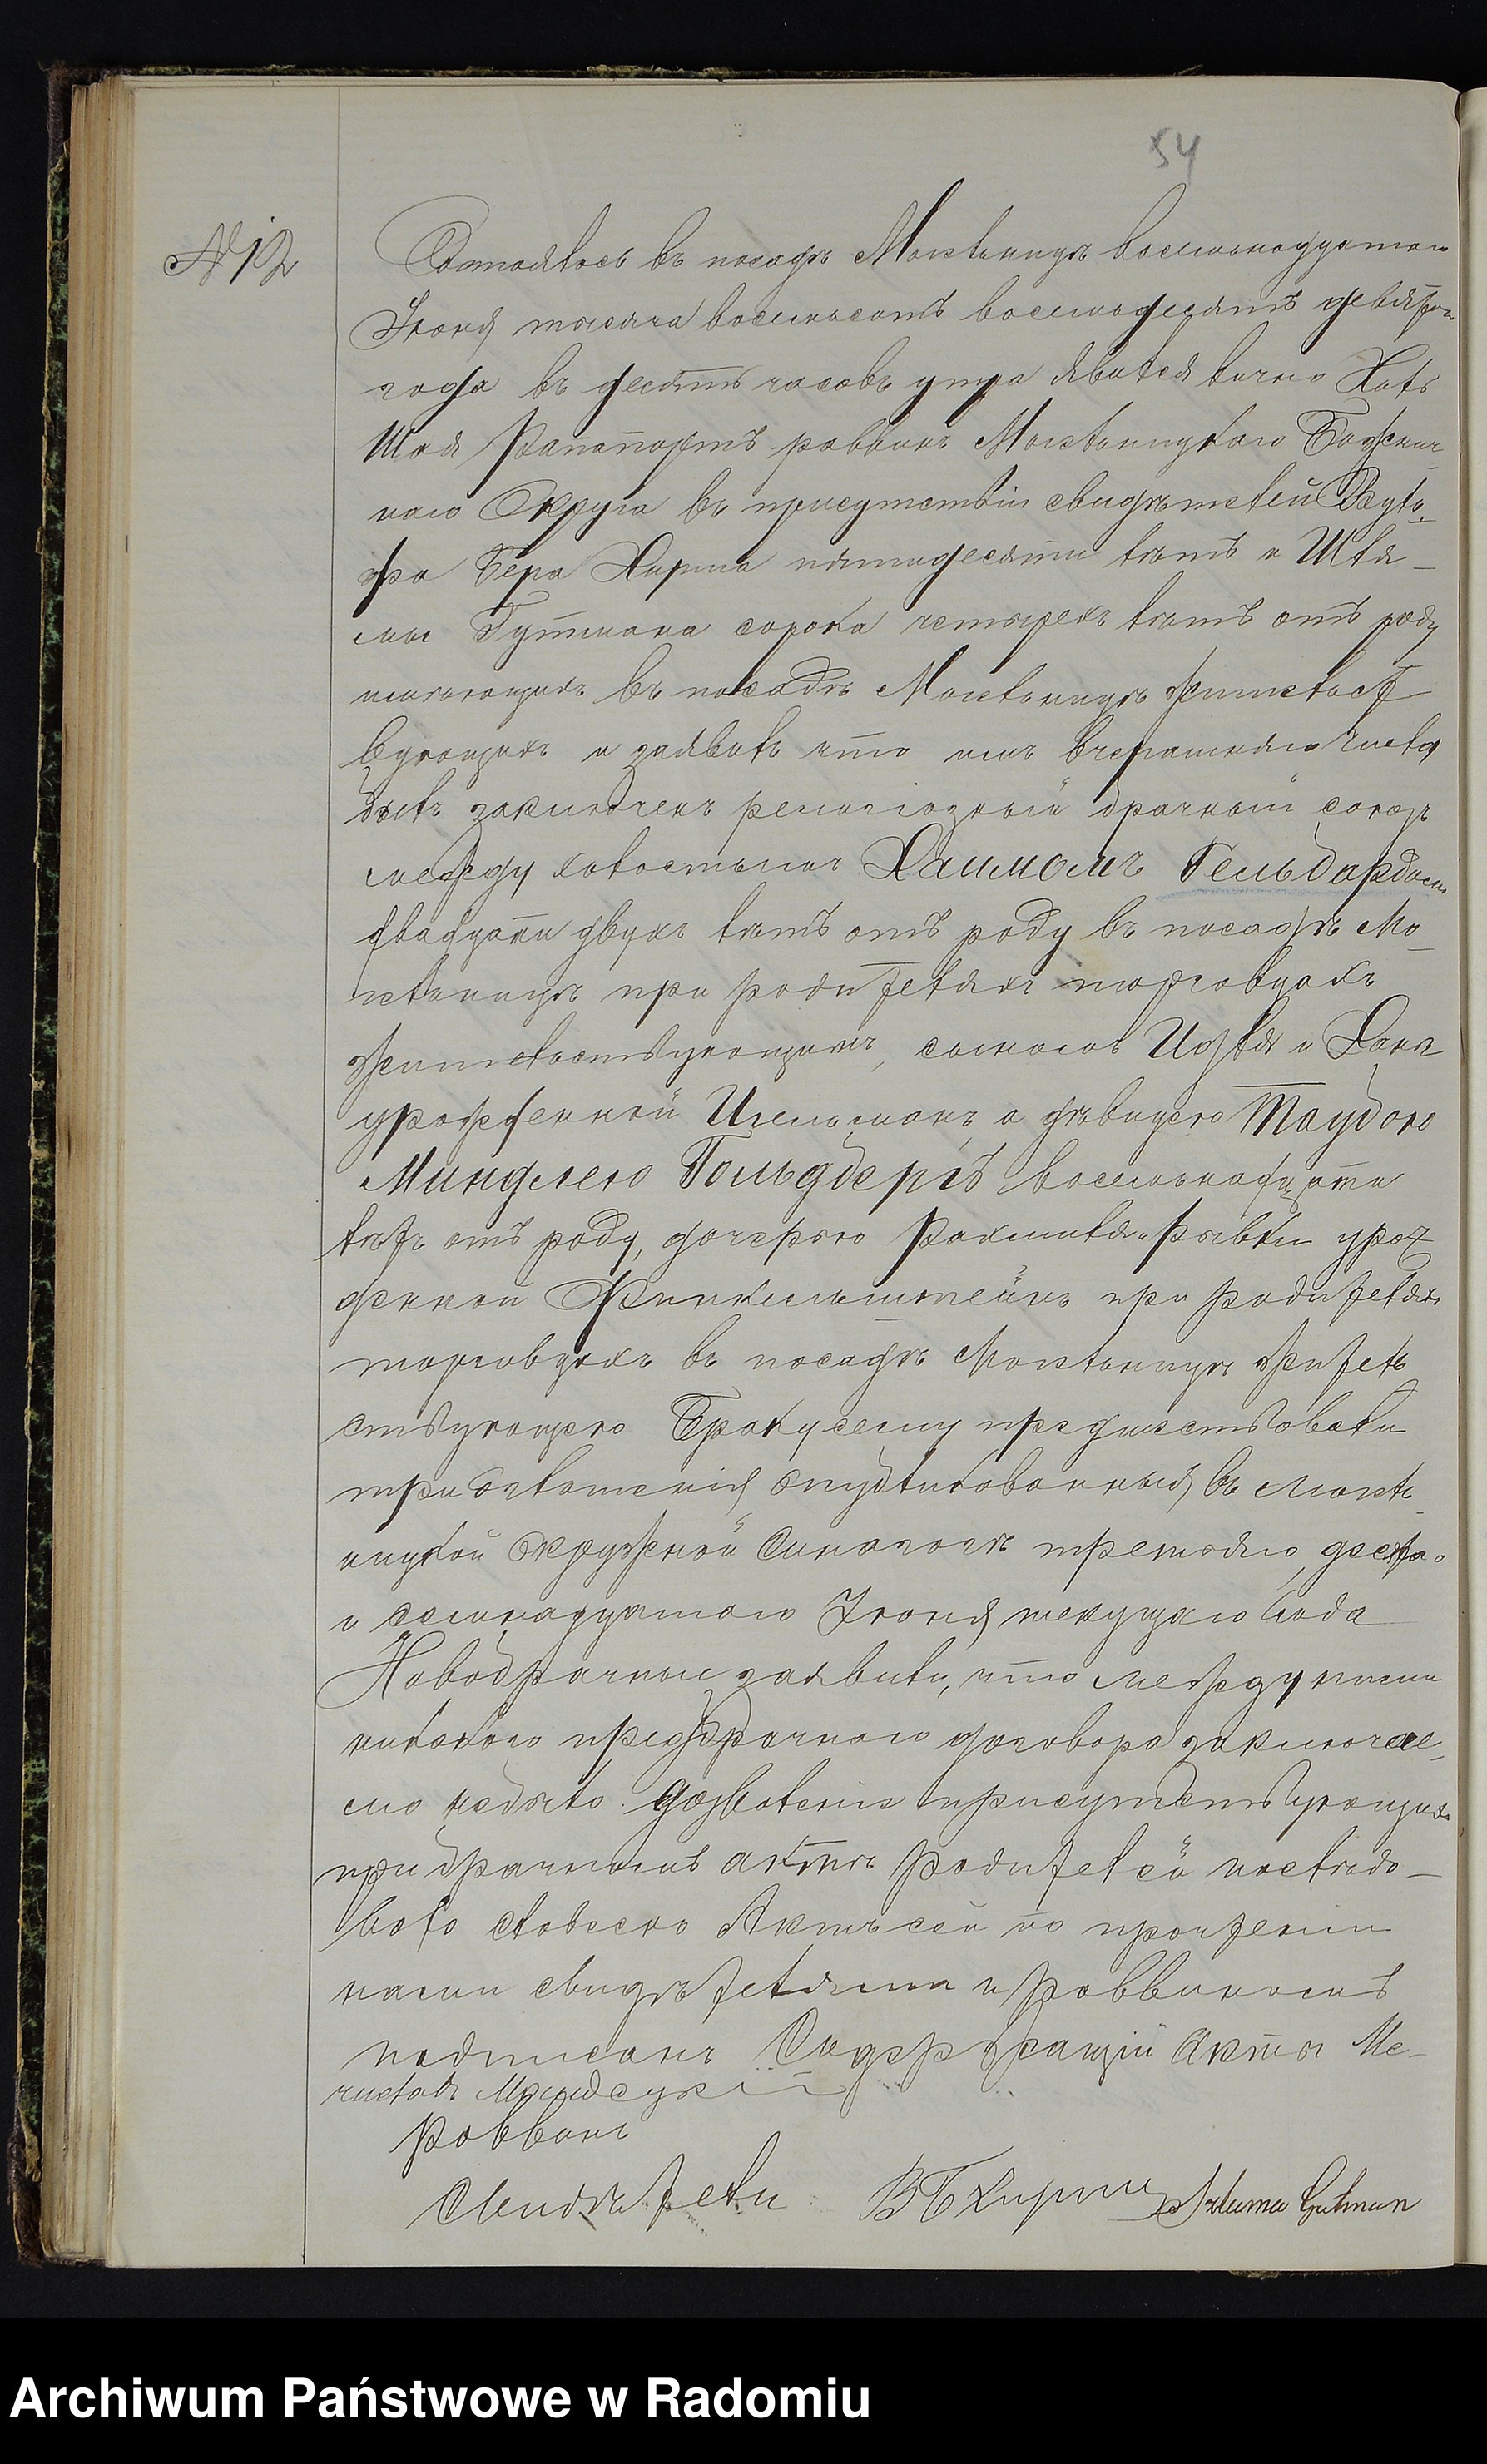 54
№ 12
Состоялось въ посадѣ Могельницѣ восемьнадцатаго
Іюня тысяча восемьсотъ восемьдесятъ девятаго
года въ десять часовъ утра явился лично Хилъ
Шая Рапапортъ раввинъ Могельницкаго Божнич-
наго Округа въ присутствіи свидѣтелей Вуль-
фа Бера Хирша пятидесяти лѣтъ и Шля-
мы Гутмана сорока четырехъ лѣтъ отъ роду
имѣющихъ въ посадѣ Могельницѣ жительст-
вующихъ и заявилъ что имъ вчерашняго числа
былъ заключенъ религіозный брачный союзъ
между холостымъ Хаимомъ Гельбардомъ
двадцати двухъ лѣтъ отъ роду въ посадѣ Мо-
гельницѣ при родителяхъ торговцахъ
жительствующимъ, сыномъ Израля и Ханы
урожденной Игельманъ, а дѣвицею Таубою
Миндлею Гольдбергъ восемьнадцати
лѣтъ отъ роду, дочерью Рахмиля и Рывки урож
денной Финкельштейнъ при родителяхъ
торговцахъ въ посадѣ Могельницѣ житель
ствующею Браку сему предшествовали
три оглашенія опубликованныя въ Могель-
ницкой Окружной Синагогѣ третьяго, десятаго
и семнадцатаго Іюня текущаго года
Новобрачные заявили, что между ними
никакого предбрачнаго договора заключае-
мо небыло. Дозволеніе присутствующихъ
при брачномъ актѣ родителей послѣдо-
вало словесно Актъ сей по прочтеніи
нами свидѣтелями и раввиномъ
подписанъ Содержащій Акты Ме-
числавъ
Раввинъ
Свидѣтели В Б Хиршъ Szlama Gutman
Archiwum Państwowe w Radomiu